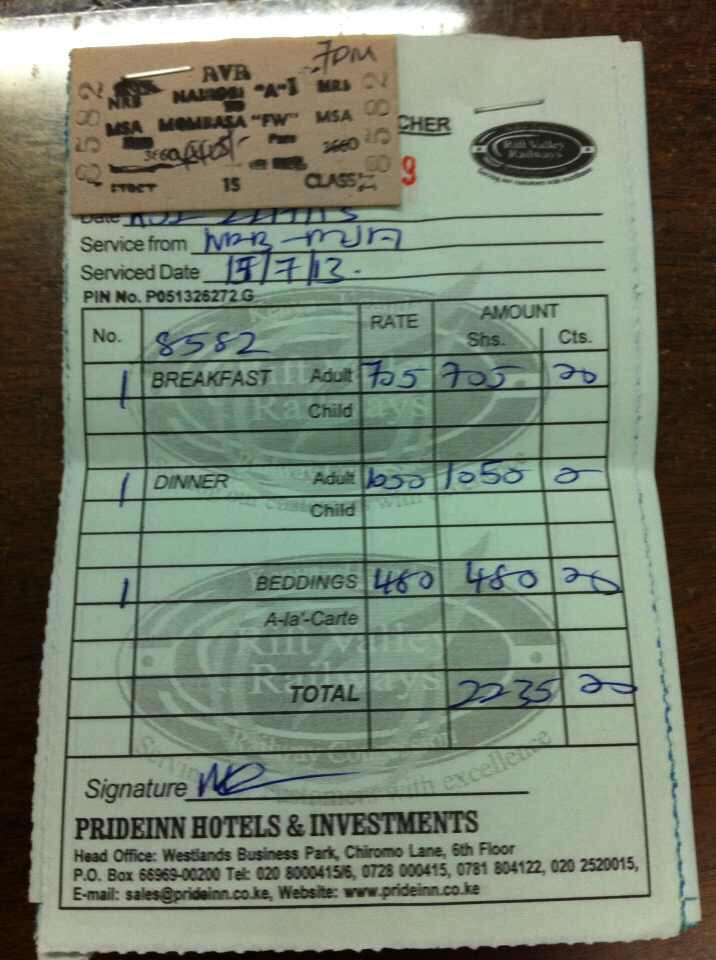 7PM
RVR
NRB NAIROBI "A" 1 NRB
TO
MSA MOMBASA "FW" MSA
3660 3660
15 CLASS
8582
8582
CHER
9
Rift Valley
Railways
Serving our customers with excellence
Date
Service from NRB - MSA
Serviced Date 15/7/13.
PIN No. P051326272 G
No. 8582 RATE AMOUNT
Shs. Cts.
1 BREAKFAST Adult 705 705
Child
1 DINNER Adult 1050 1050
Child
1 BEDDINGS 480 480
A-la'-Carte
TOTAL 2235
Signature
PRIDEINN HOTELS & INVESTMENTS
Head Office: Westlands Business Park, Chiromo Lane, 6th Floor
P.O. Box 66969-00200 Tel: 020 8000415/6, 0728 000415, 0781 804122, 020 2520015,
E-mail: sales@prideinn.co.ke, Website: www.prideinn.co.ke